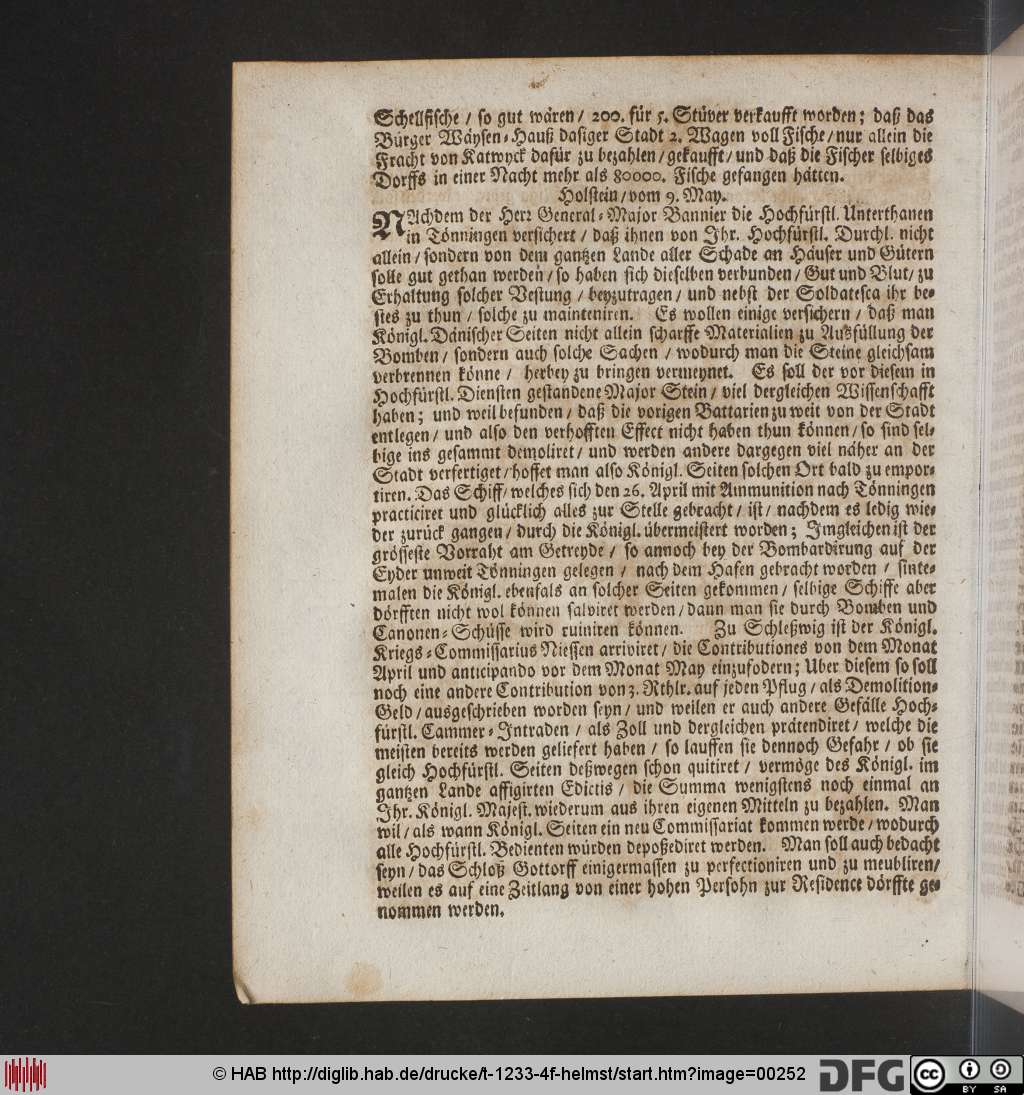 Schellfische / so gut wären / 200. für 5. Stüver verkaufft worden; daß das
Bürger Wäysen-Hauß dasiger Stadt 2. Wagen voll Fische / nur allein die
Fracht von Katwyck dafür zu bezahlen / gekaufft / und daß die Fischer selbiges
Dorffs in einer Nacht mehr als 80000. Fische gefangen hätten.
Holstein / vom 9. May.
NAchdem der Herr General-Major Bannier die Hochfürstl. Unterthanen
in Tönningen versichert / daß ihnen von Ihr. Hochfürstl. Durchl. nicht
allein / sondern von dem gantzen Lande aller Schade an Häuser und Gütern
solle gut gethan werden / so haben sich dieselben verbunden / Gut und Blut / zu
Erhaltung solcher Vestung / beyzutragen / und nebst der Soldatesca ihr be-
stes zu thun / solche zu mainteniren. Es wollen einige versichern / daß man
Königl. Dänischer Seiten nicht allein scharffe Materialien zu Ausfüllung der
Bomben / sondern auch solche Sachen / wodurch man die Steine gleichsam
verbrennen könne / herbey zu bringen vermeynet. Es soll der vor diesem in
Hochfürstl. Diensten gestandene Major Stein / viel dergleichen Wissenschafft
haben; und weil befunden / daß die vorigen Battarien zu weit von der Stadt
entlegen / und also den verhofften Effect nicht haben thun können / so sind sel-
bige ins gesammt demoliret / und werden andere dargegen viel näher an der
Stadt verfertiget / hoffet man also Königl. Seiten solchen Ort bald zu empor-
tiren. Das Schiff / welches sich den 26. April mit Ammunition nach Tönningen
practiciret und glücklich alles zur Stelle gebracht / ist / nachdem es ledig wie-
der zurück gangen / durch die Königl. übermeistert worden; Imgleichen ist der
grösseste Vorraht am Getreyde / so annoch bey der Bombardirung auf der
Eyder unweit Tönningen gelegen / nach dem Hafen gebracht worden / sinte-
malen die Königl. ebenfals an solcher Seiten gekommen / selbige Schiffe aber
dörfften nicht wol können salviret werden / dann man sie durch Bomben und
Canonen-Schüsse wird ruiniren können. Zu Schleßwig ist der Königl.
Kriegs-Commissarius Niessen arriviret / die Contributiones von dem Monat
April und anticipando vor dem Monat May einzufodern; Uber diesem so soll
noch eine andere Contribution von 3. Rthlr. auf jeden Pflug / als Demolition-
Geld / ausgeschrieben worden seyn / und weilen er auch andere Gefälle Hoch-
fürstl. Cammer-Intraden / als Zoll und dergleichen prätendiret / welche die
meisten bereits werden geliefert haben / so lauffen sie dennoch Gefahr / ob sie
gleich Hochfürstl. Seiten deßwegen schon quitiret / vermöge des Königl. im
gantzen Lande affigirten Edictis / die Summa wenigstens noch einmal an
Ihr. Königl. Majest. wiederum aus ihren eigenen Mitteln zu bezahlen. Man
wil / als wann Königl. Seiten ein neu Commissariat kommen werde / wodurch
alle Hochfürstl. Bedienten würden depoßediret werden. Man soll auch bedacht
seyn / das Schloß Gottorff einigermassen zu perfectioniren und zu meubliren /
weilen es auf eine Zeitlang von einer hohen Persohn zur Residence dörffte ge-
nommen werden.
© HAB http://diglib.hab.de/drucke/t-1233-4f-helmst/start.htm?image=00252
DFG
cc BY SA